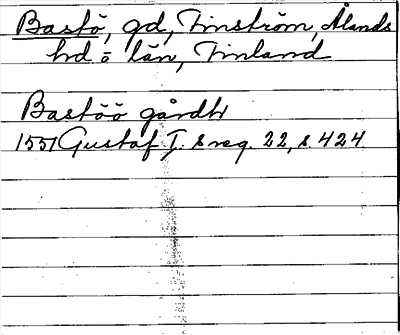 Bastö, gd, Finström, Ålands
hd o län, Finland
Bastöö gårdh
1551 Gustaf I. s reg. 22, s. 424